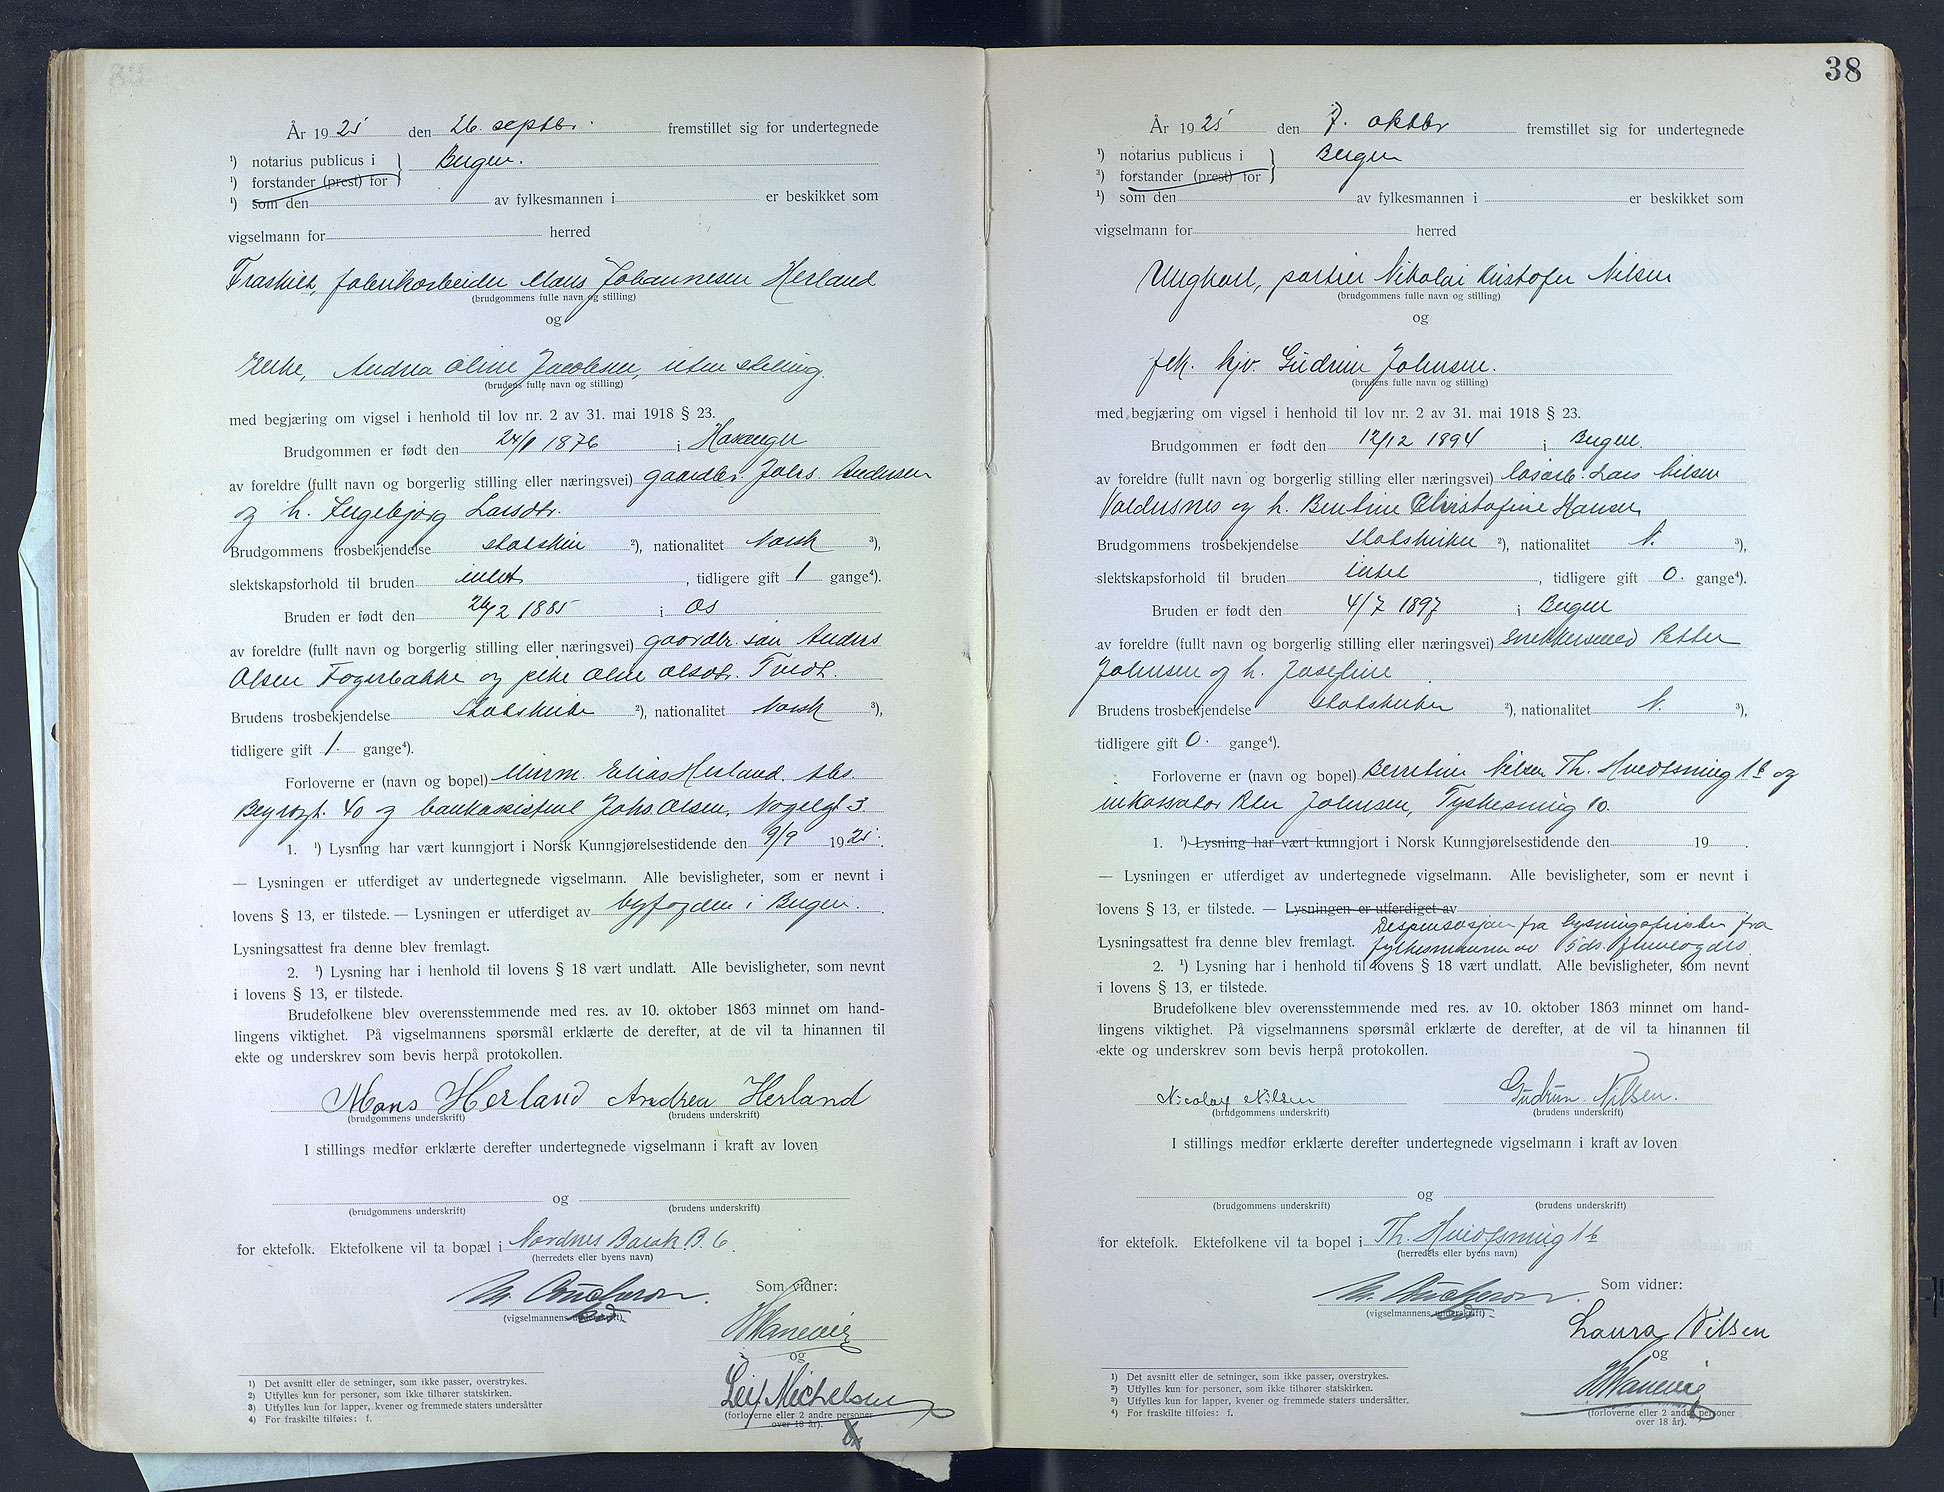 År 1925 den 26. septbr. fremstillet sig for undertegnede
¹) notarius publicus i Bergen.
¹) forstander (prest) for
¹) som den av fylkesmannen i er beskikket som
vigselmann for herred
Fraskilt, fabrikarbeider Mons Johannesen Herland
(brudgommens fulle navn og stilling)
og
Enke, Andrea Oline Jacobsen, uten stilling.
(brudens fulle navn og stilling)
med begjæring om vigsel i henhold til lov nr. 2 av 31. mai 1918 § 23.
Brudgommen er født den 1876 i
av foreldre (fullt navn og borgerlig stilling eller næringsvei) gaardbr. Johs. Andersen
og h. Ingebjørg Larsdtr.
Brudgommens trosbekjendelse statskirken ²), nationalitet Norsk ³),
slektskapsforhold til bruden intet, tidligere gift 1 gange⁴).
Bruden er født den 26/2 1885 i Os
av foreldre (fullt navn og borgerlig stilling eller næringsvei) gaardbr. søn Anders
Olsen Fogerbakke og pike Oline Olsdtr. Tveit.
Brudens trosbekjendelse Statskirke ²), nationalitet Norsk ³),
tidligere gift 1. gange⁴).
Forloverne er (navn og bopel) Murm. Elias Herland
40 og bankassistent Johs. Olsen, 3.
1. ¹) Lysning har vært kunngjort i Norsk Kunngjørelsestidende den 9/9 1925.
— Lysningen er utferdiget av undertegnede vigselmann. Alle bevisligheter, som er nevnt i
lovens § 13, er tilstede. — Lysningen er utferdiget av byfogden i Bergen.
Lysningsattest fra denne blev fremlagt.
2. ¹) Lysning har i henhold til lovens § 18 vært undlatt. Alle bevisligheter, som nevnt
i lovens § 13, er tilstede.
Brudefolkene blev overensstemmende med res. av 10. oktober 1863 minnet om hand-
lingens viktighet. På vigselmannens spørsmål erklærte de derefter, at de vil ta hinannen til
ekte og underskrev som bevis herpå protokollen.
Mons Herland Andrea Herland
(brudgommens underskrift) (brudens underskrift)
I stillings medfør erklærte derefter undertegnede vigselmann i kraft av loven
og
(brudgommens underskrift) (brudens underskrift)
for ektefolk. Ektefolkene vil ta bopæl i Nordnes Barak B. 6.
(herredets eller byens navn)
Som vidner:
(vigselmannens underskrift)
og
Leif Michelsen
(forloverne eller 2 andre personer
over 18 år).
1) Det avsnitt eller de setninger, som ikke passer, overstrykes.
2) Utfylles kun for personer, som ikke tilhører statskirken.
3) Utfylles kun for lapper, kvener og fremmede staters undersåtter
4) For fraskilte tilføies: f.
38
År 1925 den 7. oktbr fremstillet sig for undertegnede
¹) notarius publicus i Bergen
²) forstander (prest) for
¹) som den av fylkesmannen i er beskikket som
vigselmann for herred
Ungkarl, portier Nikolai Kristofer Nilsen
(brudgommens fulle navn og stilling)
og
frk. Gudrun Johnsen.
(brudens fulle navn og stilling)
med begjæring om vigsel i henhold til lov nr. 2 av 31. mai 1918 § 23.
Brudgommen er født den 12/12 1894 i Bergen.
av foreldre (fullt navn og borgerlig stilling eller næringsvei) løsarb. Lars Nilsen
Valdersnes og h. Bentine Christofine Hansen
Brudgommens trosbekjendelse Statskirken ²), nationalitet N. ³),
slektskapsforhold til bruden intet, tidligere gift 0. gange⁴).
Bruden er født den 4/7 1897 i Bergen
av foreldre (fullt navn og borgerlig stilling eller næringsvei) Petter
Johnsen og h. Josefine
Brudens trosbekjendelse Statskirken ²), nationalitet N. ³),
tidligere gift 0. gange⁴).
Forloverne er (navn og bopel) Nilsen Th. Hvedtsmug 1b og
inkassator Johnsen, Tyskesmug 10.
1. ¹) Lysning har vært kunngjort i Norsk Kunngjørelsestidende den 19 .
— Lysningen er utferdiget av undertegnede vigselmann. Alle bevisligheter, som er nevnt i
lovens § 13, er tilstede. — Lysningen er utferdiget av
Dispensasjon fra lysningsfristen fra
Lysningsattest fra denne blev fremlagt. fylkesmannen av 5 ds.
2. ¹) Lysning har i henhold til lovens § 18 vært undlatt. Alle bevisligheter, som nevnt
i lovens § 13, er tilstede.
Brudefolkene blev overensstemmende med res. av 10. oktober 1863 minnet om hand-
lingens viktighet. På vigselmannens spørsmål erklærte de derefter, at de vil ta hinannen til
ekte og underskrev som bevis herpå protokollen.
Nicolay Nilsen Gudrun Nilsen.
(brudgommens underskrift) (brudens underskrift)
I stillings medfør erklærte derefter undertegnede vigselmann i kraft av loven
og
(brudgommens underskrift) (brudens underskrift)
for ektefolk. Ektefolkene vil ta bopel i Th. Hvedtsmug 1b
(herredets eller byens navn)
Som vidner:
(vigselmannens underskrift)
Laura Nilsen
og
(forloverne eller 2 andre personer
over 18 år).
1) Det avsnitt eller de setninger, som ikke passer, overstrykes.
2) Utfylles kun for personer, som ikke tilhører statskirken.
3) Utfylles kun for lapper, kvener og fremmede staters undersåtter.
4) For fraskilte tilføies: f.